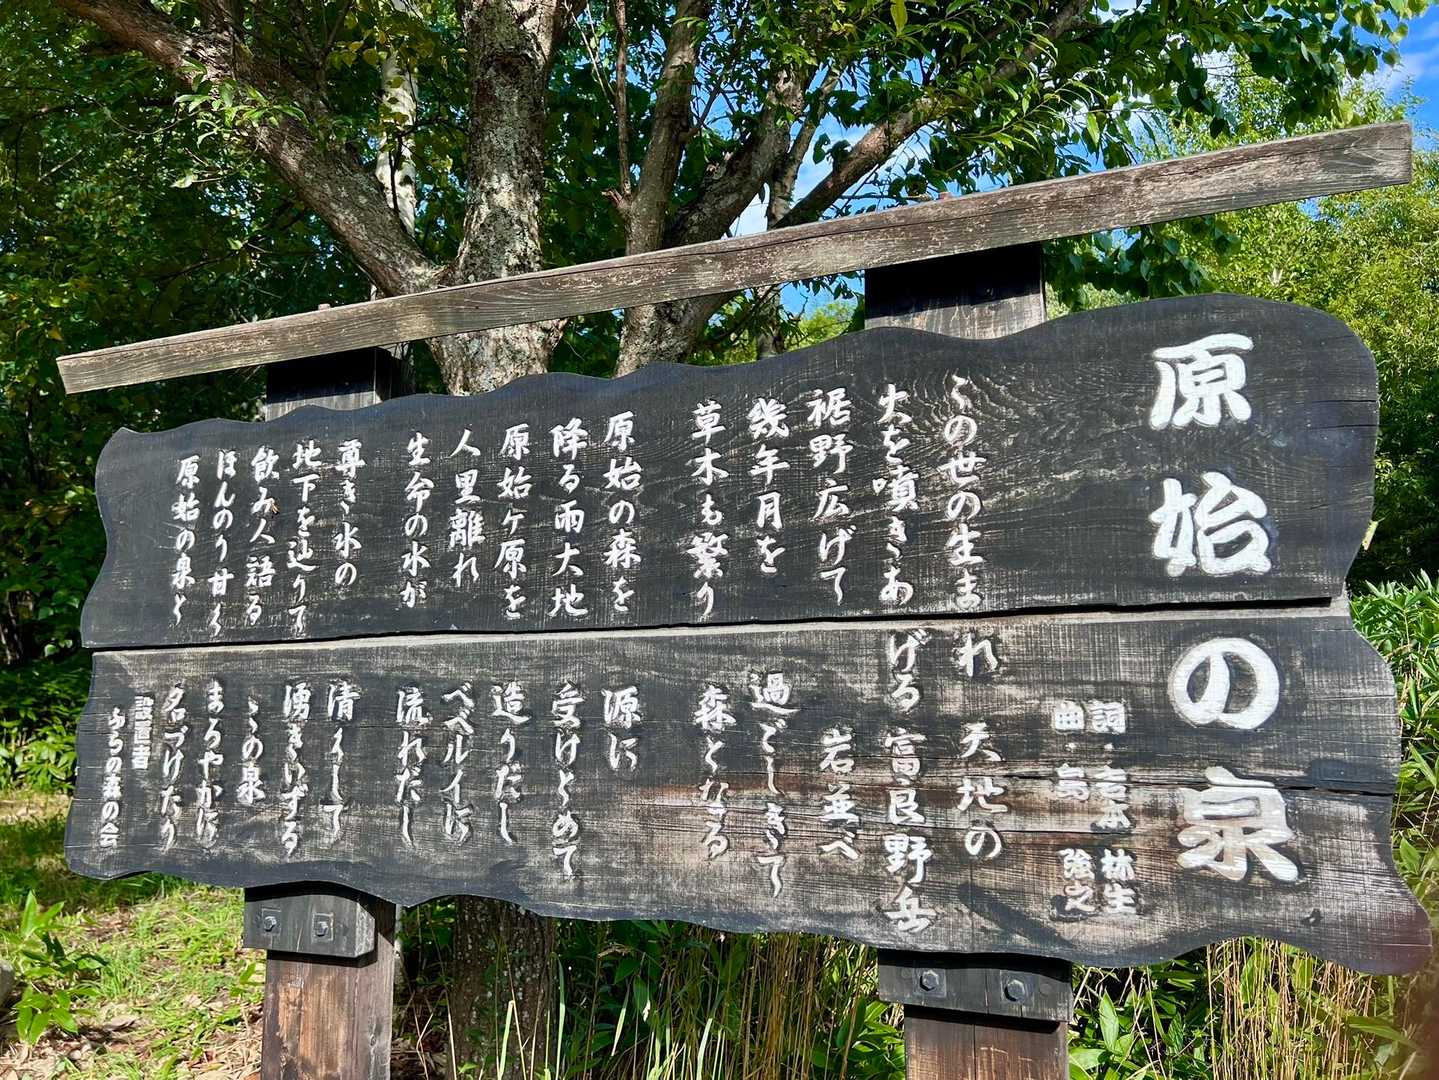 原始の泉
詞・岩本 林生
曲・高 隆之
この世の生まれ 天地の
火を噴きあげる 富良野岳
裾野広げて 岩並べ
幾年月を 過ごしきて
草木も繁り 森となる
原始の森を 源に
降る雨大地 受けとめて
原始ヶ原を 造りだし
人里離れ ベベルイに
生命の水が 流れだし
尊き水の 清くして
地下を辿りて 湧きいずる
飲み人語る ここの泉
ほんのり甘く まろやかに
原始の泉と 名づけたり
設置者
ふらの森の会